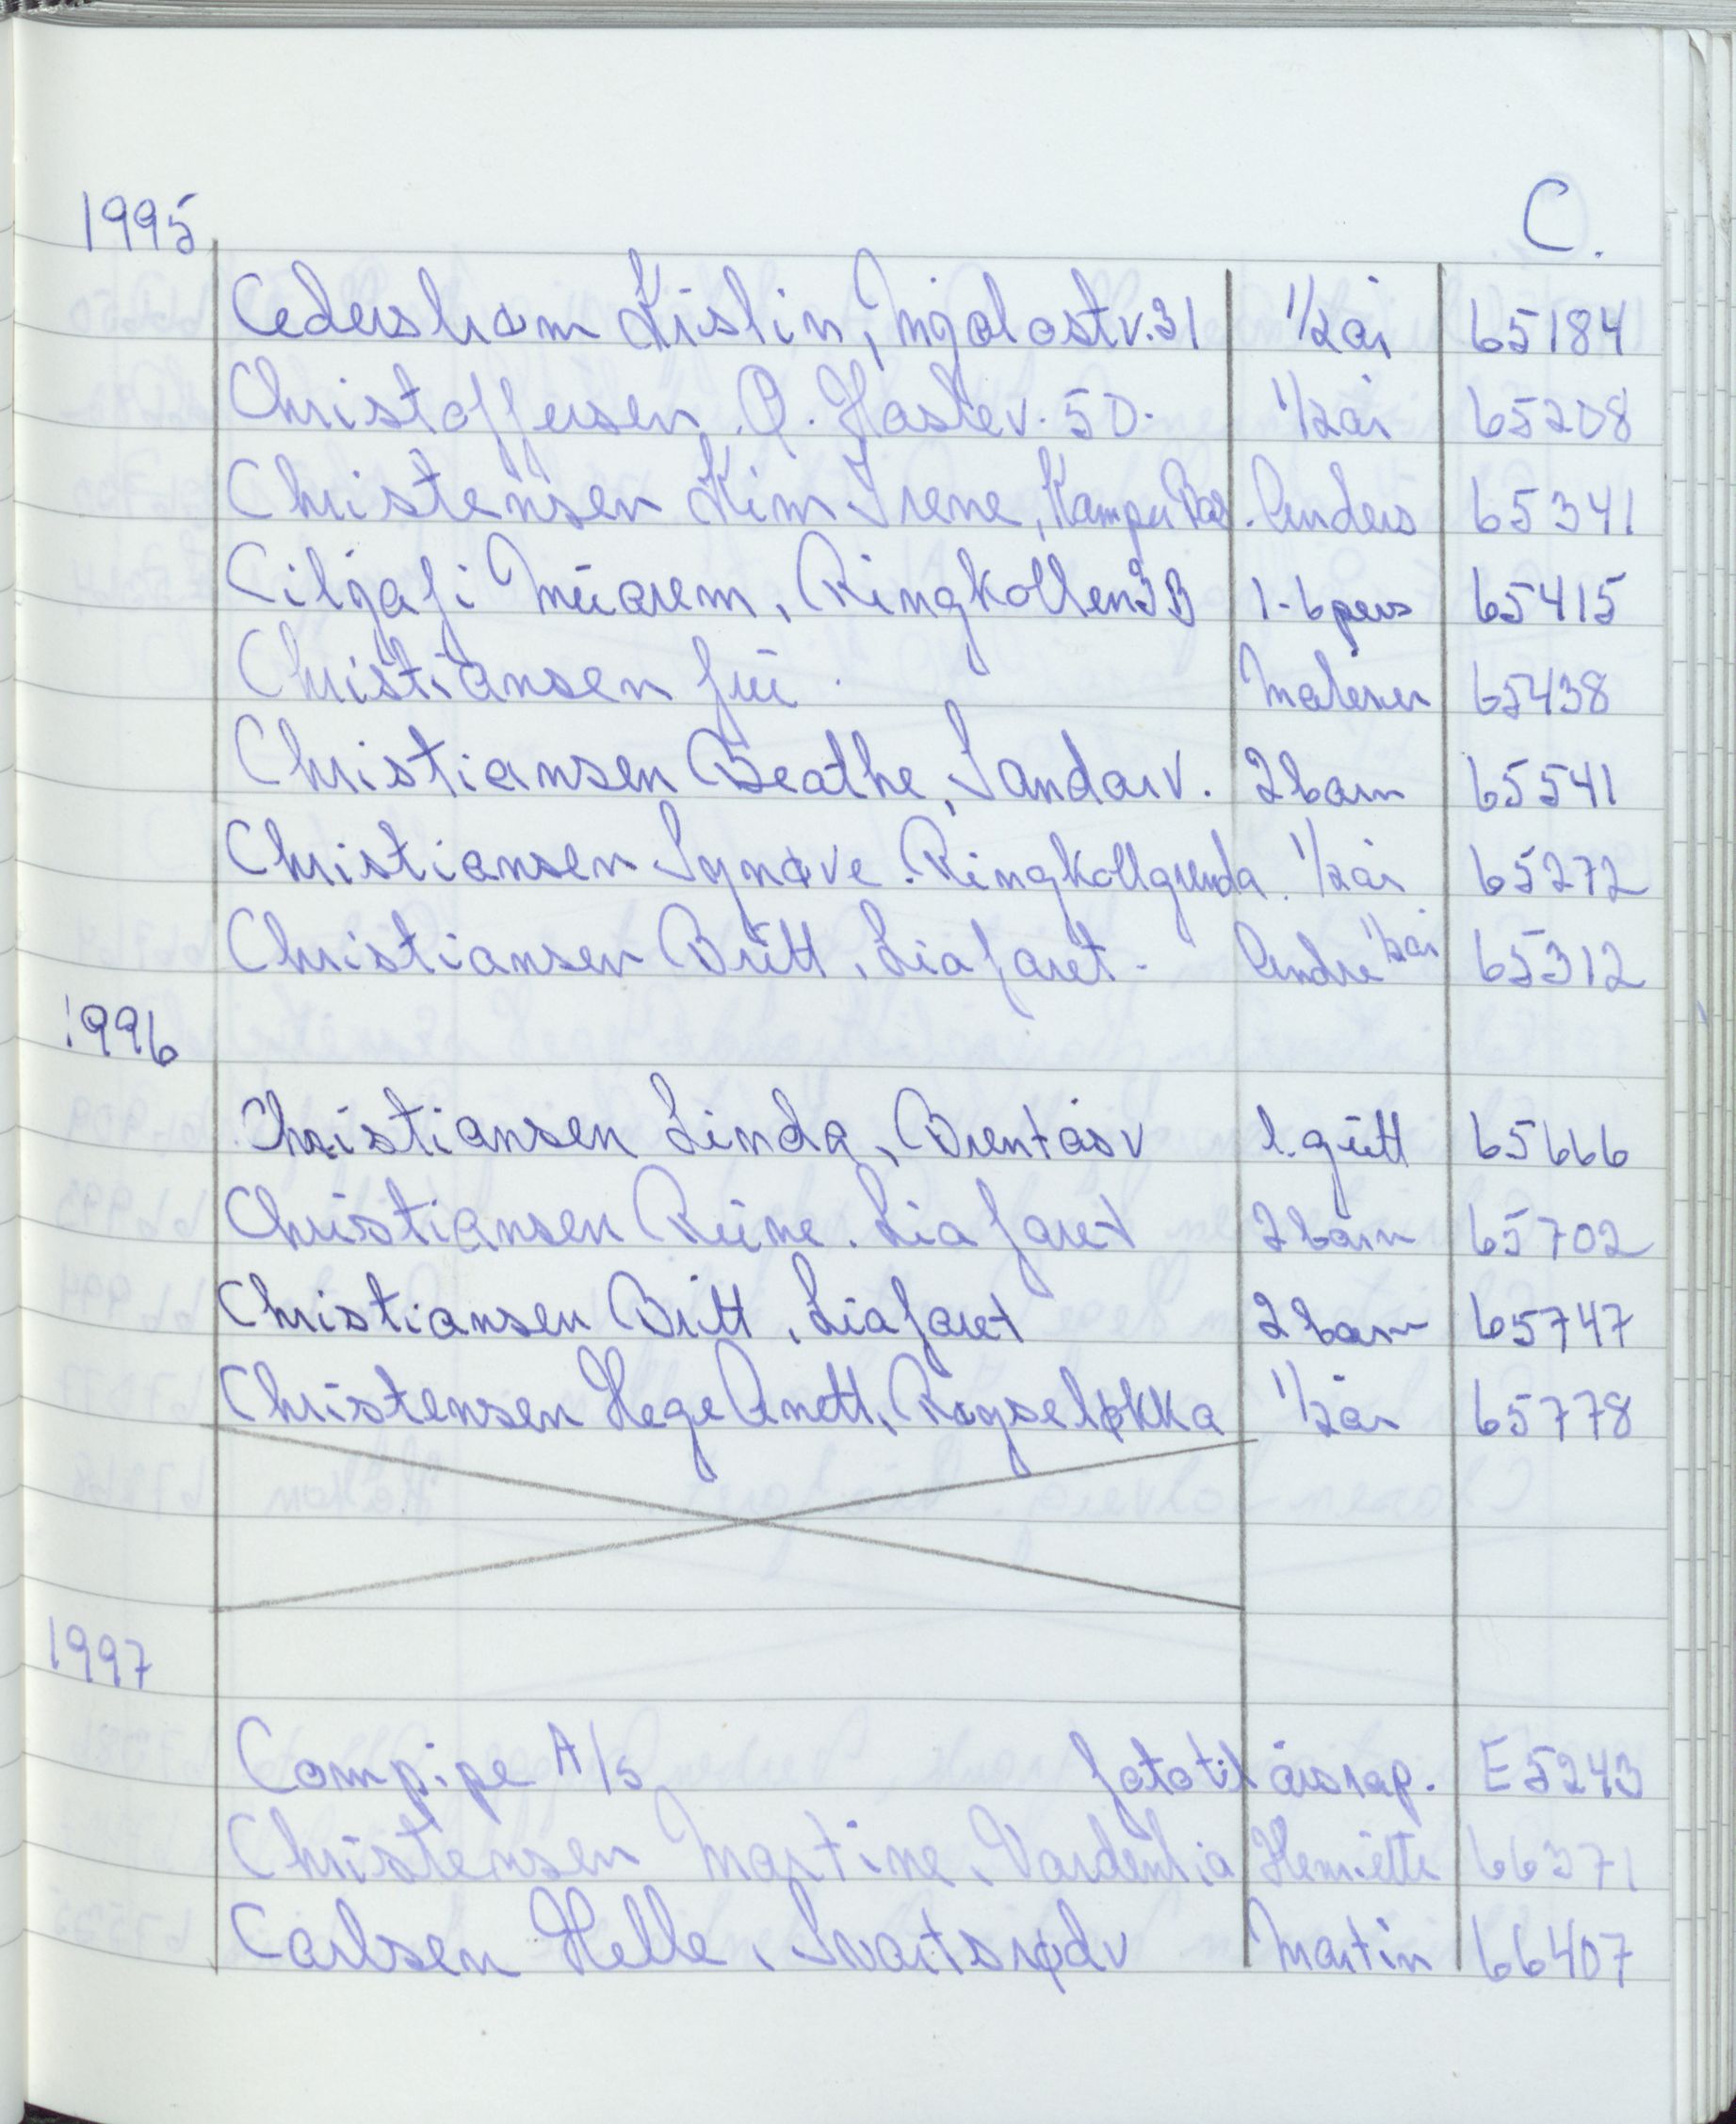 1995
C.
Cedersham Kristin, Mjølostv. 31 1/2 år 65184
Christoffersen, O. Haslev. 50. 1/2 år 65208
Christensen Kim Irene, Kamper Anders 65341
Ciljafi Müarem, Ringkollen 3B 1-6 pers 65415
Christiansen frü. Malerier 65438
Christiansen Beathe, Sandarv. 2 barn 65541
Christiansen Synøve. Ringkollgrenda. 1/2 år 65272
Christiansen Britt, Liafaret. André 1/2 år 65312
1996
Christiansen Linda, Brentåsv 1. gütt 65666
Christiansen Rüne. Liafaret 2 barn 65702
Christiansen Britt, Liafaret 2 barn 65747
Christensen Hege Anett, Røyseløkka 1/2 år 65778
1997
Compipe A/s foto til årsrap. E5243
Christensen Martine, Vardenlia Henriette 66371
Carlsen Helle, Svartsrødv Martin 66407